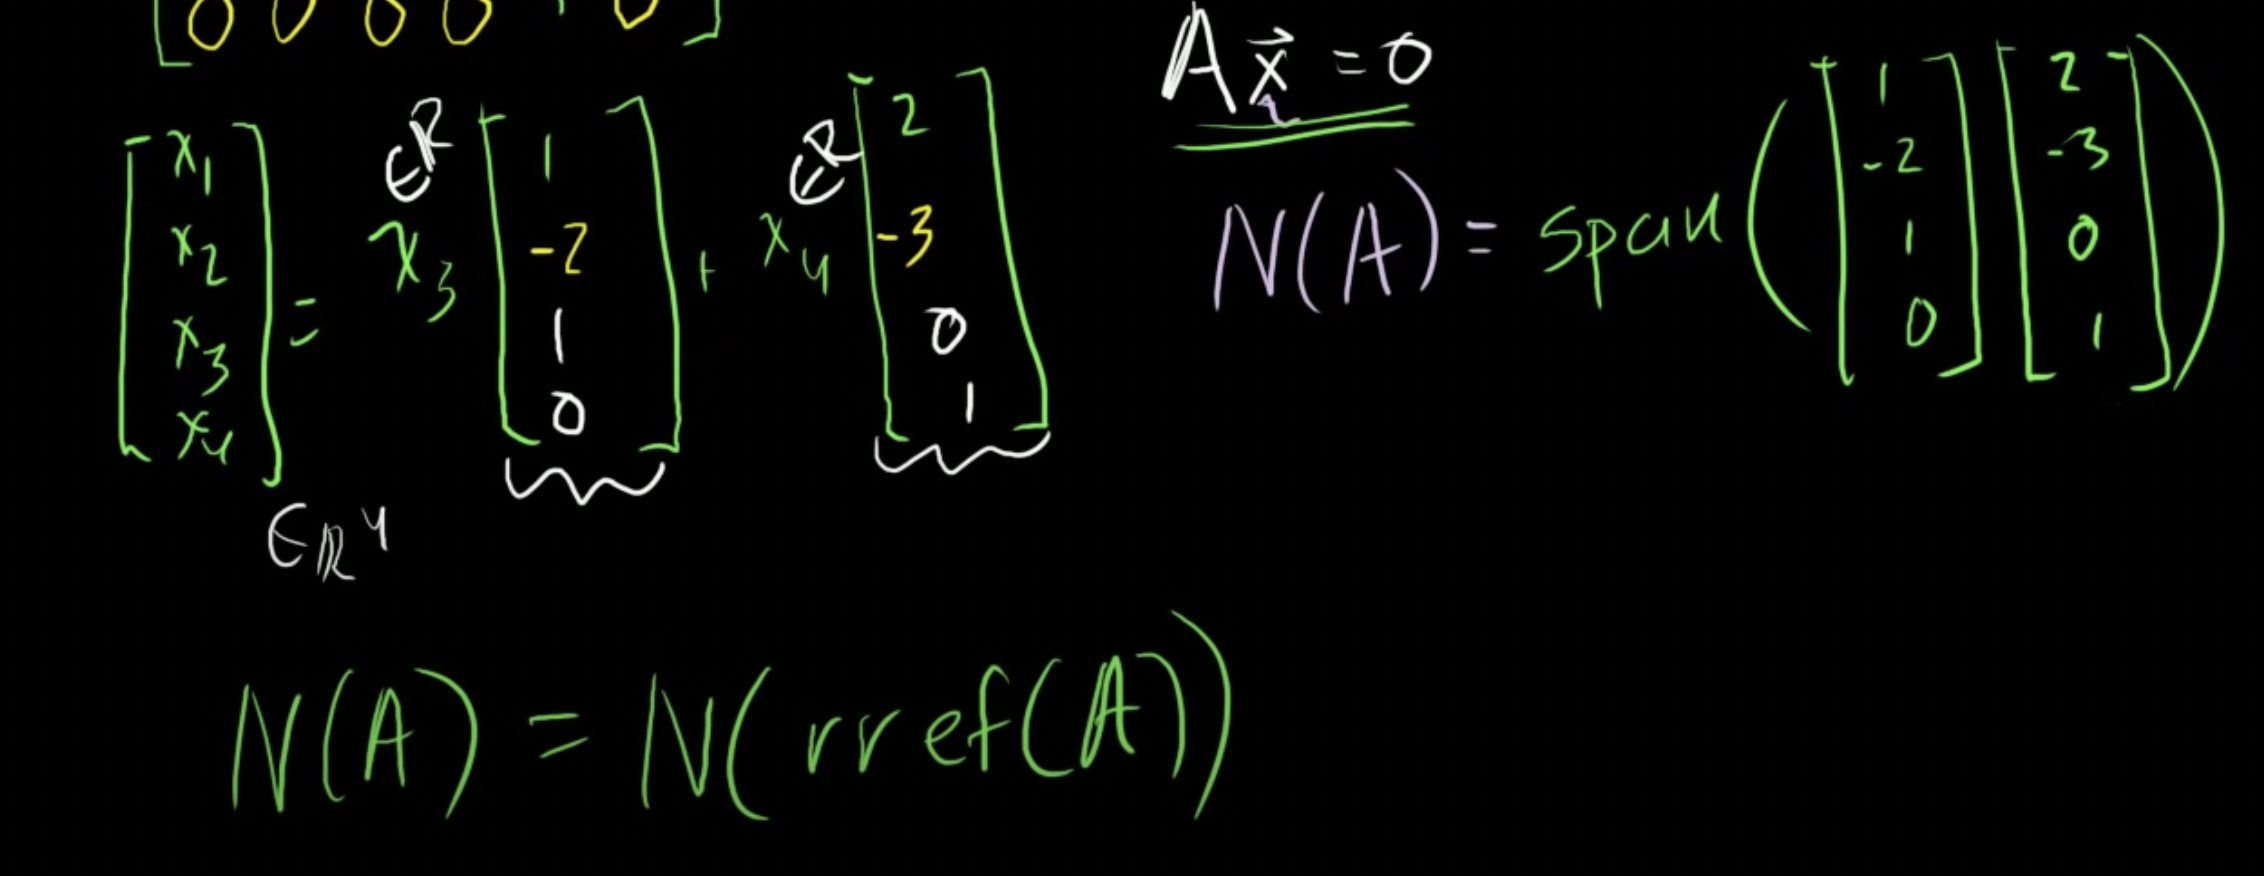 [0 0 0 0 | 0]
A x⃗ = 0
[x1 x2 x3 x4] = x3 [1 -2 1 0] + x4 [2 -3 0 1]
∈R ∈R
∈R⁴
N(A) = span([1 -2 1 0] [2 -3 0 1])
N(A) = N(rref(A))